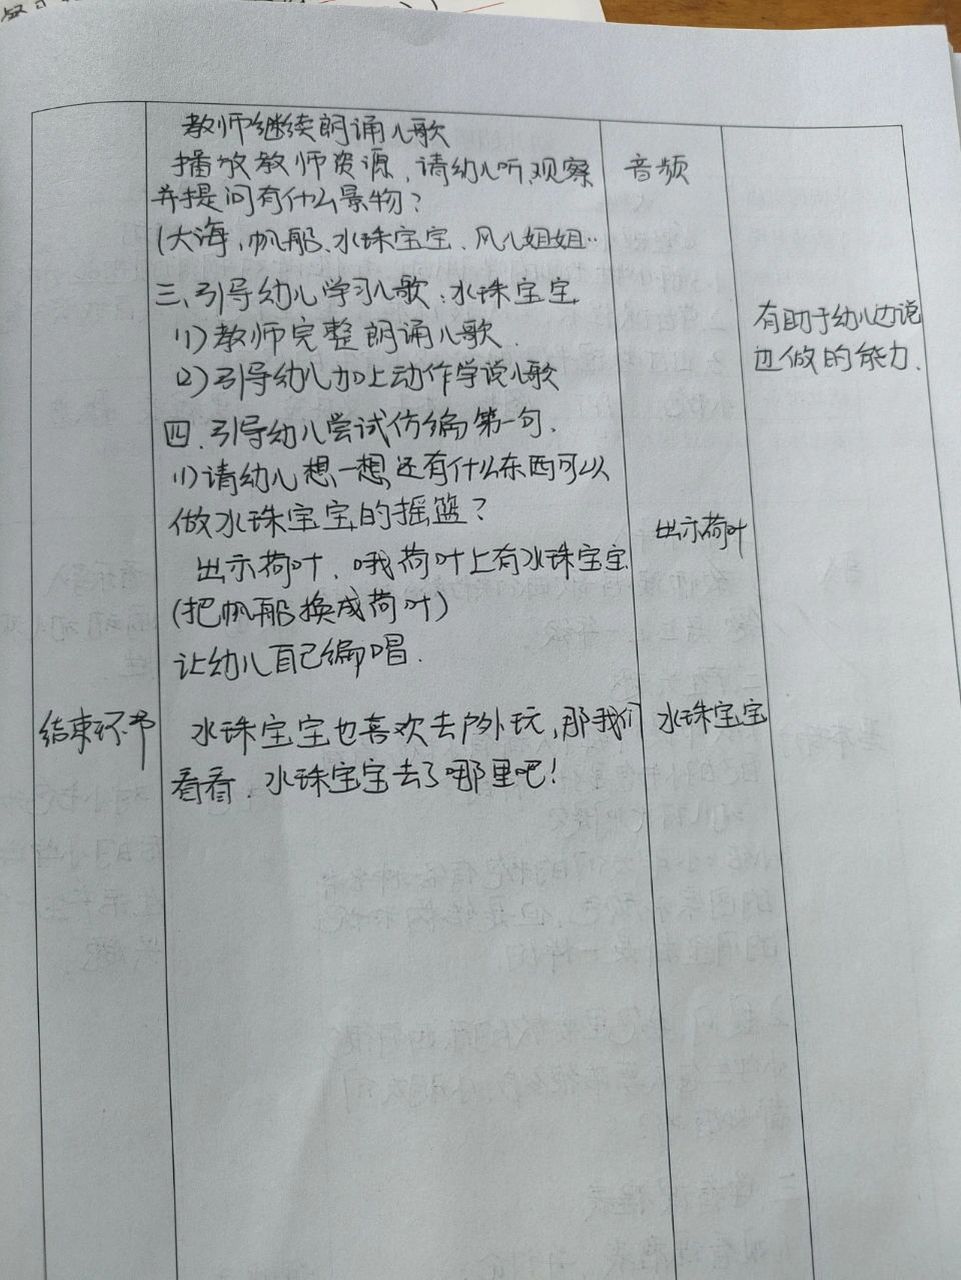 教师继续朗诵儿歌
播放教师资源，请幼儿听、观察
并提问有什么景物？
(大海、帆船、水珠宝宝、风儿姐姐…
音频
三、引导幼儿学习儿歌：水珠宝宝
(1)教师完整朗诵儿歌.
(2)引导幼儿加上动作学说儿歌
有助于幼儿边说
边做的能力.
四、引导幼儿尝试仿编第一句.
(1)请幼儿想一想还有什么东西可以
做水珠宝宝的摇篮？
出示荷叶、哦荷叶上有水珠宝宝
(把帆船换成荷叶)
让幼儿自己编唱.
出示荷叶
结束环节
水珠宝宝也喜欢去户外玩,那我们
看看、水珠宝宝去了哪里吧!
水珠宝宝